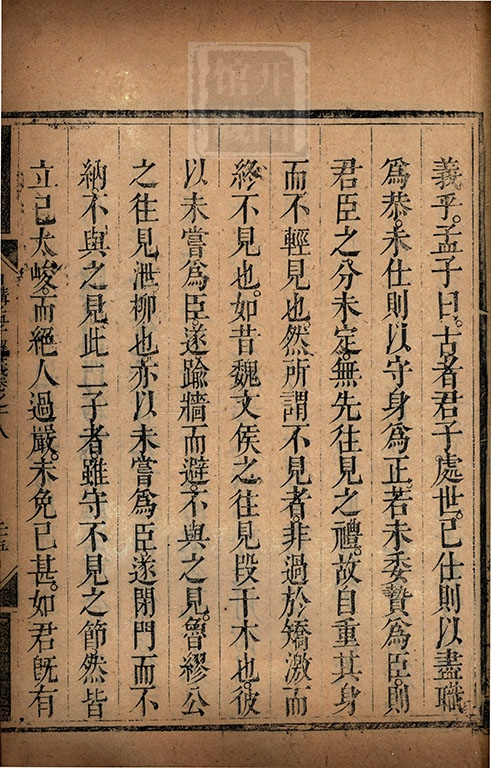 義乎。孟子曰。古者君子處世。已仕則以盡職
爲恭。未仕則以守身爲正。若未委贄爲臣。則
君臣之分未定。無先往見之禮。故自重其身
而不輕見也。然所謂不見者。非過於矯激而
終不見也。如昔魏文侯之往見段干木也。彼
以未嘗爲臣。遂踰牆而避。不與之見。魯繆公
之往見泄柳也。亦以未嘗爲臣。遂閉門而不
納。不與之見。此二子者。雖守不見之節。然皆
立己太峻。而絕人過嚴。未免已甚。如君旣有